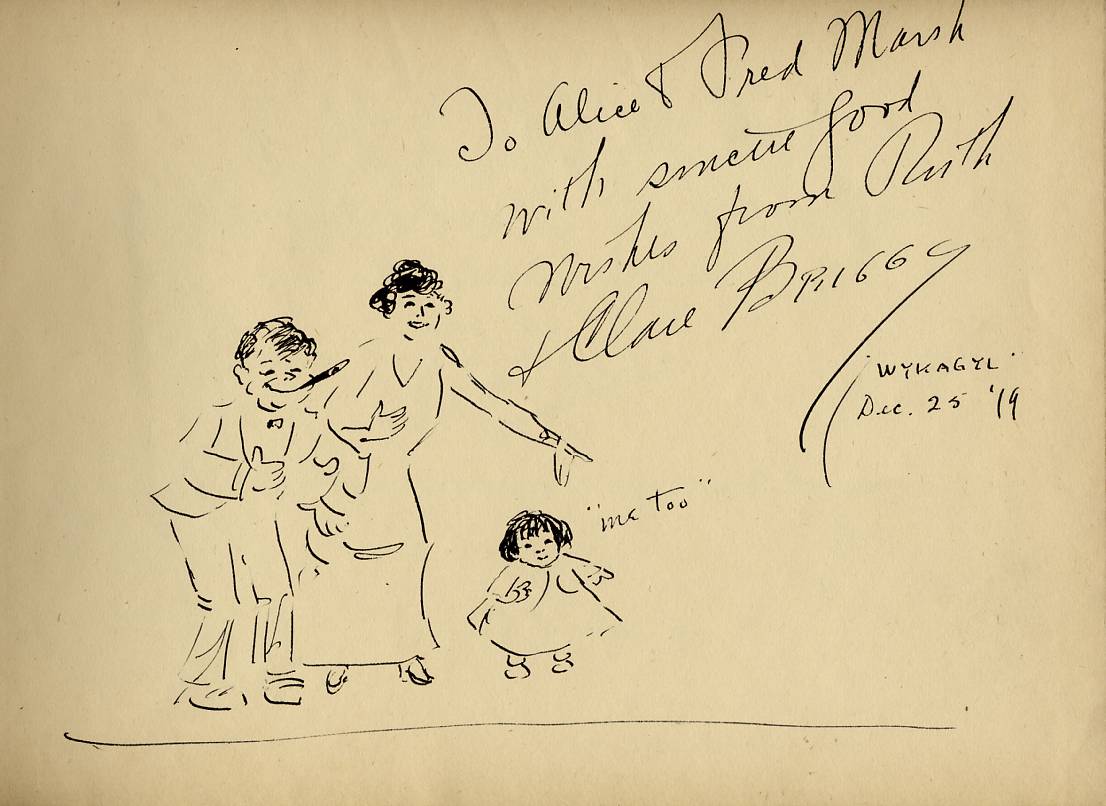 To Alice & Fred Marsh
with sincere good
wishes from Ruth
& Clare BRIGGS
"WYKAGYL"
Dec. 25 '19
"me too"